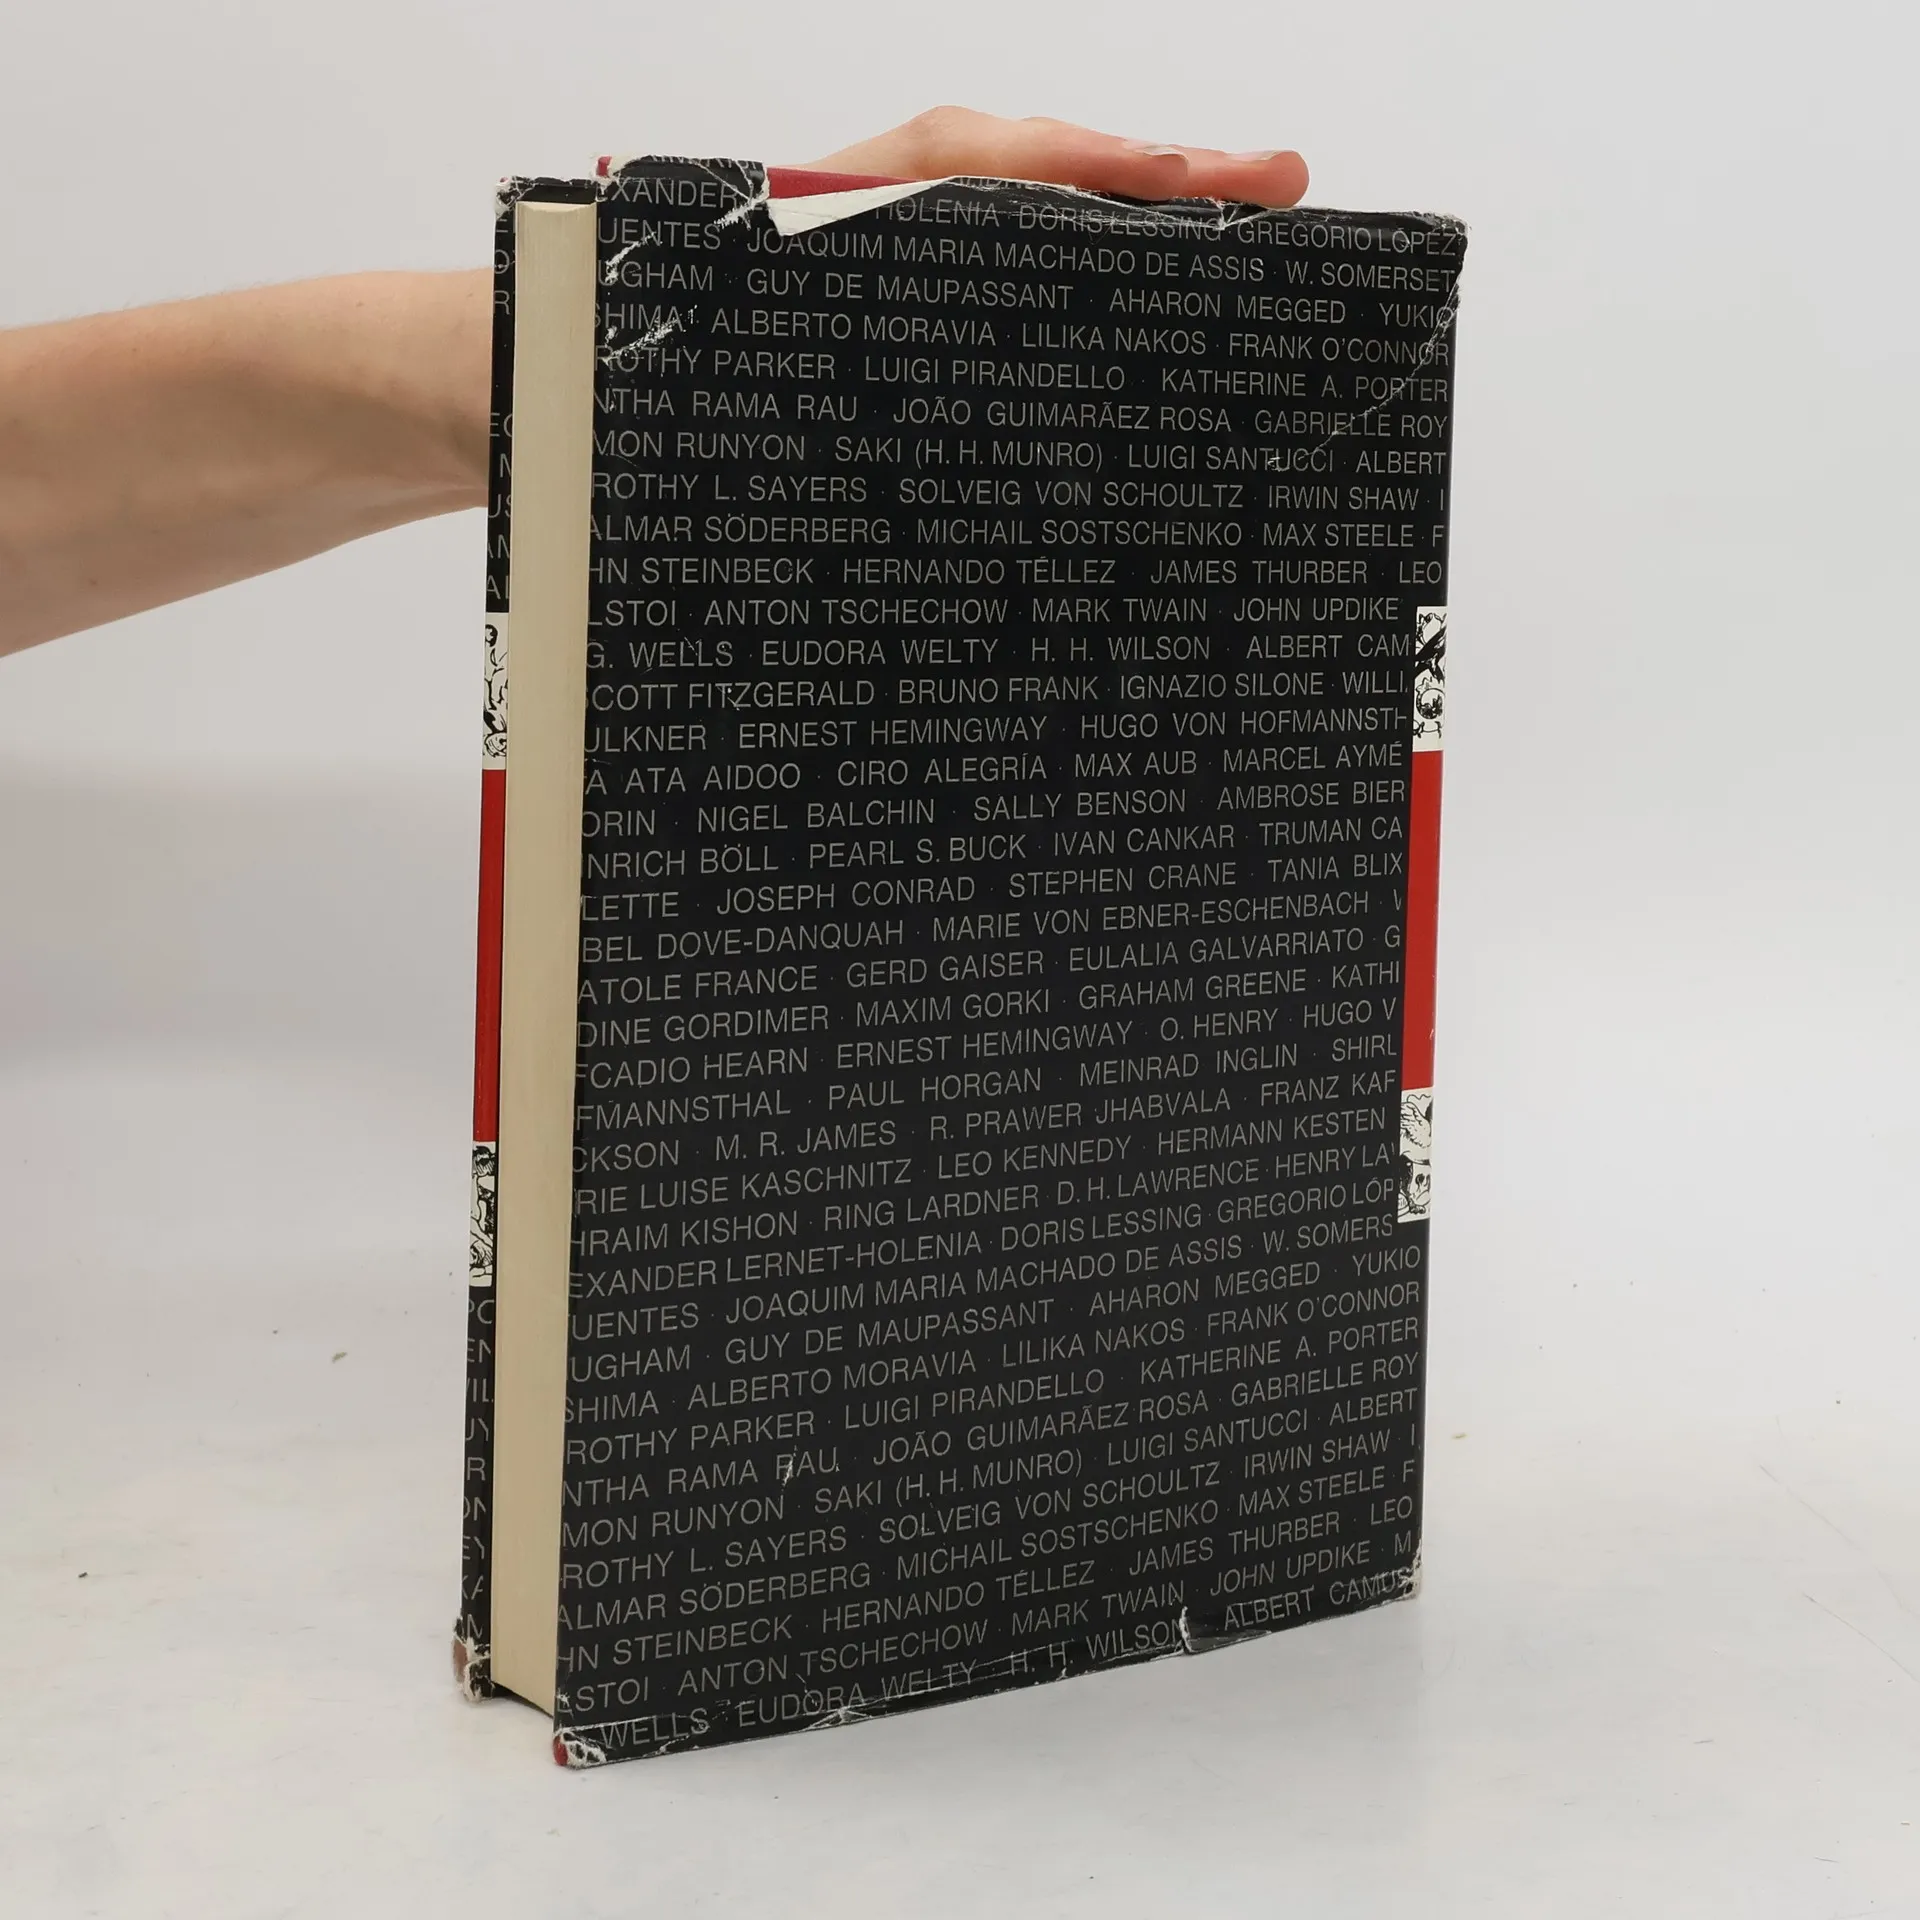 XANDER HOLENIA · DORIS LESSING · GREGORIO LOPEZ
UENTES · JOAQUIM MARIA MACHADO DE ASSIS · W. SOMERSET
UGHAM · GUY DE MAUPASSANT · AHARON MEGGED · YUKIO
SHIMA · ALBERTO MORAVIA · LILIKA NAKOS · FRANK O'CONNOR
ROTHY PARKER · LUIGI PIRANDELLO · KATHERINE A. PORTER
NTHA RAMA RAU · JOÃO GUIMARÃEZ ROSA · GABRIELLE ROY
MON RUNYON · SAKI (H. H. MUNRO) · LUIGI SANTUCCI · ALBERT
ROTHY L. SAYERS · SOLVEIG VON SCHOULTZ · IRWIN SHAW · I
ALMAR SÖDERBERG · MICHAIL SOSTSCHENKO · MAX STEELE · F
HN STEINBECK · HERNANDO TÉLLEZ · JAMES THURBER · LEO
LSTOI · ANTON TSCHECHOW · MARK TWAIN · JOHN UPDIKE
G. WELLS · EUDORA WELTY · H. H. WILSON · ALBERT CAM
SCOTT FITZGERALD · BRUNO FRANK · IGNAZIO SILONE · WILLI
ULKNER · ERNEST HEMINGWAY · HUGO VON HOFMANNSTH
A ATA AIDOO · CIRO ALEGRÍA · MAX AUB · MARCEL AYMÉ
ORIN · NIGEL BALCHIN · SALLY BENSON · AMBROSE BIER
INRICH BÖLL · PEARL S. BUCK · IVAN CANKAR · TRUMAN CA
LETTE · JOSEPH CONRAD · STEPHEN CRANE · TANIA BLIX
BEL DOVE-DANQUAH · MARIE VON EBNER-ESCHENBACH · V
ATOLE FRANCE · GERD GAISER · EULALIA GALVARRIATO · G
DINE GORDIMER · MAXIM GORKI · GRAHAM GREENE · KATHI
FCADIO HEARN · ERNEST HEMINGWAY · O. HENRY · HUGO V
FMANNSTHAL · PAUL HORGAN · MEINRAD INGLIN · SHIRL
CKSON · M. R. JAMES · R. PRAWER JHABVALA · FRANZ KAF
RIE LUISE KASCHNITZ · LEO KENNEDY · HERMANN KESTEN
HRAIM KISHON · RING LARDNER · D. H. LAWRENCE · HENRY LAW
EXANDER LERNET-HOLENIA · DORIS LESSING · GREGORIO LÓP
UENTES · JOAQUIM MARIA MACHADO DE ASSIS · W. SOMERS
UGHAM · GUY DE MAUPASSANT · AHARON MEGGED · YUKIO
SHIMA · ALBERTO MORAVIA · LILIKA NAKOS · FRANK O'CONNOR
ROTHY PARKER · LUIGI PIRANDELLO · KATHERINE A. PORTER
NTHA RAMA RAU · JOÃO GUIMARÃEZ ROSA · GABRIELLE ROY
MON RUNYON · SAKI (H. H. MUNRO) · LUIGI SANTUCCI · ALBERT
ROTHY L. SAYERS · SOLVEIG VON SCHOULTZ · IRWIN SHAW · I
ALMAR SÖDERBERG · MICHAIL SOSTSCHENKO · MAX STEELE · F
HN STEINBECK · HERNANDO TÉLLEZ · JAMES THURBER · LEO
LSTOI · ANTON TSCHECHOW · MARK TWAIN · JOHN UPDIKE · M
WELLS · EUDORA WELTY · H. H. WILSON · ALBERT CAMUS